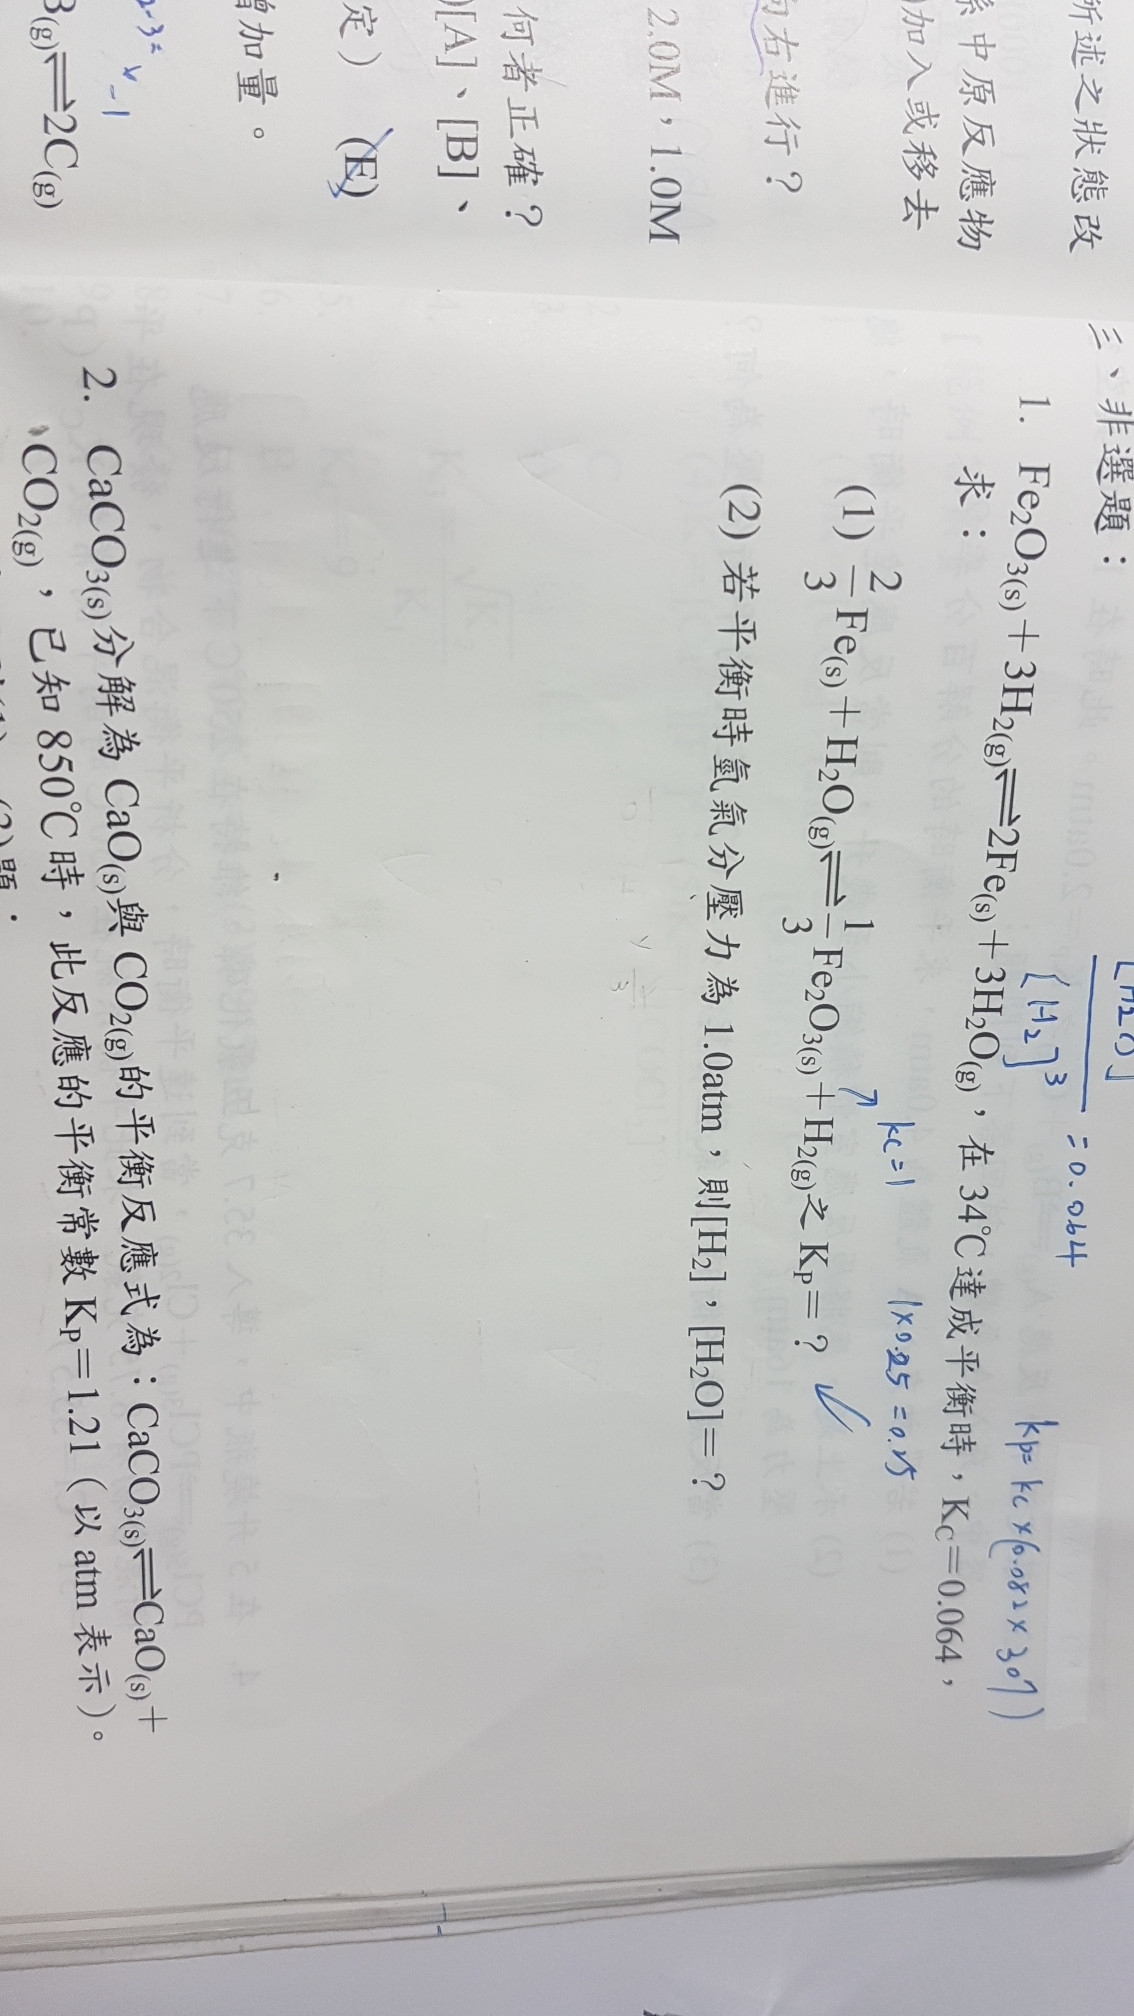 所述之狀態改
系中原反應物
加入或移去
向右進行？
2.0M，1.0M
何者正確？
)[A]、[B]、
定） (E)
增加量。
2-3=
-1
B(g)⇌2C(g)
三、非選題：
[H2O]
[H2]3 =0.064
1. Fe2O3(s)+3H2(g)⇌2Fe(s)+3H2O(g)，在34℃達成平衡時，KC=0.064，
kp=kc×(0.082×307)
求：
kc=1 1×0.25=0.25
(1) 2/3Fe(s)+H2O(g)⇌1/3Fe2O3(s)+H2(g)之KP=？
(2) 若平衡時氫氣分壓力為1.0atm，則[H2]，[H2O]=？
2. CaCO3(s)分解為CaO(s)與CO2(g)的平衡反應式為：CaCO3(s)⇌CaO(s)+
CO2(g)，已知850℃時，此反應的平衡常數KP=1.21（以atm表示）。
題：